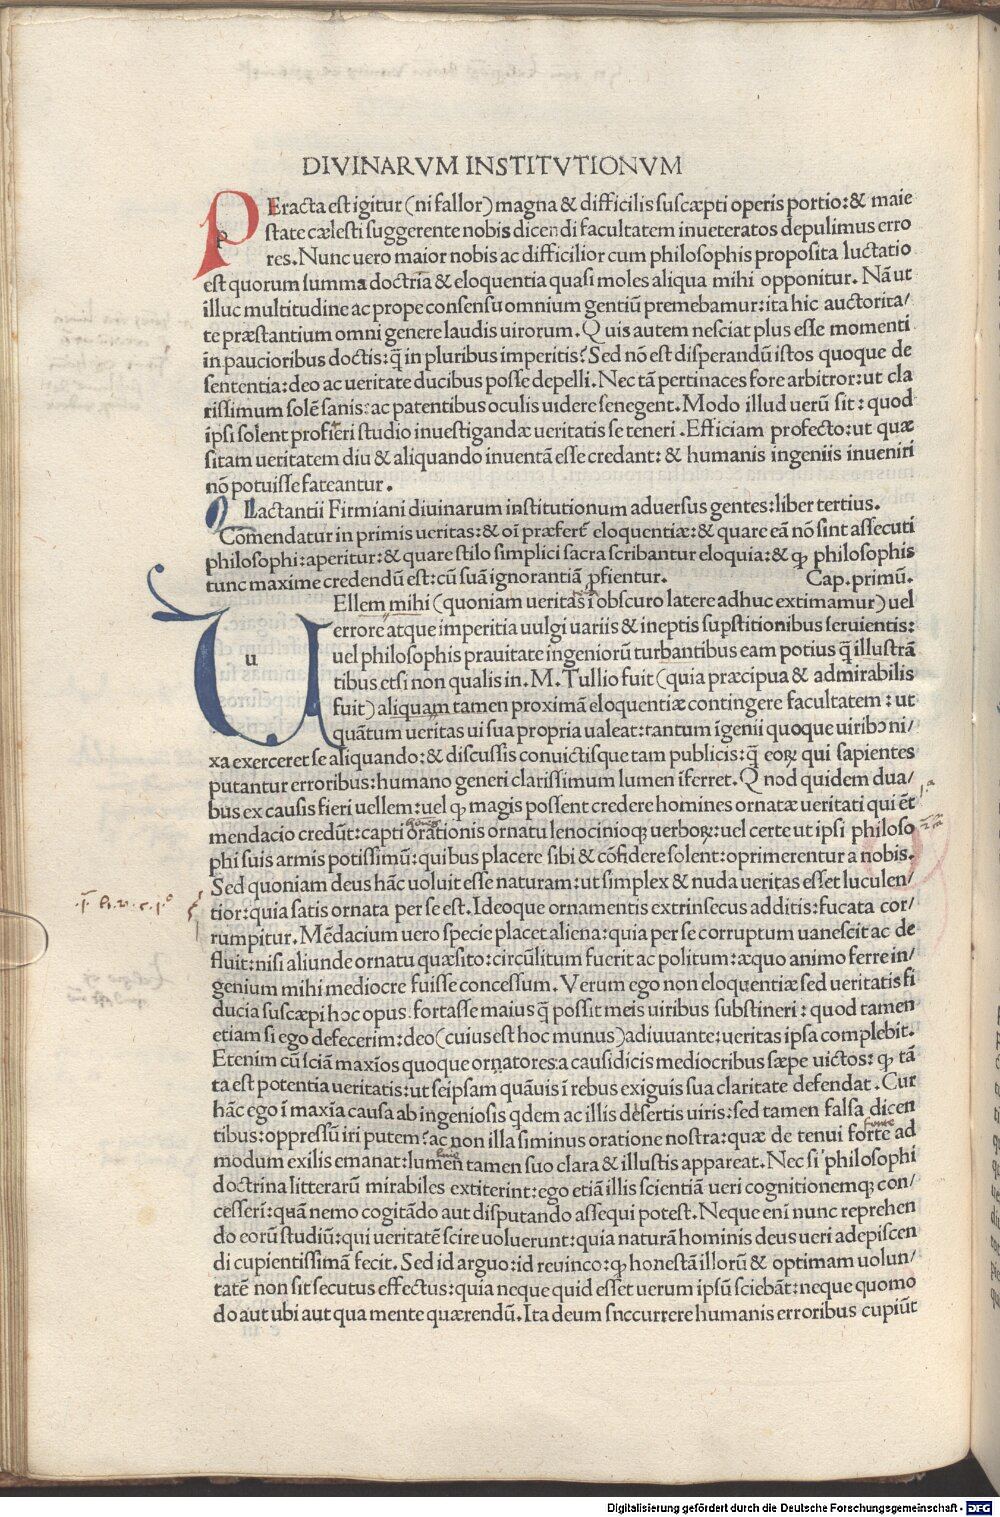 DIVINARVM INSTITVTIONVM
PEracta est igitur (ni fallor) magna & difficilis suscæpti operis portio: & maie
state cælesti suggerente nobis dicendi facultatem inueteratos depulimus erro
res. Nunc uero maior nobis ac difficilior cum philosophis proposita luctatio
est quorum summa doctria & eloquentia quasi moles aliqua mihi opponitur. Nā ut
illuc multitudine ac prope consensu omnium gentiū premebamur: ita hic auctorita/
te præstantium omni genere laudis uirorum. Quis autem nesciat plus esse momenti
in paucioribus doctis: q̄ in pluribus imperitis? Sed nō est disperandū istos quoque de
sententia: deo ac ueritate ducibus posse depelli. Nec tā pertinaces fore arbitror: ut cla
rissimum solē sanis: ac patentibus oculis uidere se negent. Modo illud uerū sit: quod
ipsi solent profiteri studio inuestigandæ ueritatis se teneri. Efficiam profecto: ut quæ
sitam ueritatem diu & aliquando inuentā esse credant: & humanis ingeniis inueniri
nō potuisse fateantur.
Lactantii Firmiani diuinarum institutionum aduersus gentes: liber tertius.
Cōmendatur in primis ueritas: & oī præfert̄ eloquentiæ: & quare eā nō sint assecuti
philosophi: aperitur: & quare stilo simplici sacra scribantur eloquia: & ꝙ philosophis
tunc maxime credendū est: cū suā ignorantiā ꝓfientur. Cap. primū.
u
VEllem mihi (quoniam ueritas ī obscuro latere adhuc extimamur) uel
errore atque imperitia uulgi uariis & ineptis supstitionibus seruientis:
uel philosophis prauitate ingeniorū turbantibus eam potius q̄ illustrā
tibus etsi non qualis in. M. Tullio fuit (quia præcipua & admirabilis
fuit) aliquam tamen proximā eloquentiæ contingere facultatem: ut
quātum ueritas ui sua propria ualeat: tantum īgenii quoque uiribɔ ni/
xa exerceret se aliquando: & discussis conuictisque tam publicis: q̄ eoꝝ qui sapientes
putantur erroribus: humano generi clarissimum lumen īferret. Qnod quidem dua/
bus ex causis fieri uellem: uel ꝙ magis possent credere homines ornatæ ueritati qui ēt
mendacio credūt: capti orationis ornatu lenocinioqꝫ uerboꝝ: uel certe ut ipsi philoso
phi suis armis potissimū: quibus placere sibi & cōfidere solent: oprimerentur a nobis.
Sed quoniam deus hāc uoluit esse naturam: ut simplex & nuda ueritas esset luculen/
tior: quia satis ornata per se est. Ideoque ornamentis extrinsecus additis: fucata cor/
rumpitur. Mēdacium uero specie placet aliena: quia per se corruptum uanescit ac de
fluit: nisi aliunde ornatu quæsito: circūlitum fuerit ac politum: æquo animo ferre in/
genium mihi mediocre fuisse concessum. Verum ego non eloquentiæ sed ueritatis fi
ducia suscæpi hoc opus fortasse maius q̄ possit meis uiribus substineri: quod tamen
etiam si ego defecerim: deo (cuius est hoc munus) adiuuante: ueritas ipsa complebit.
Etenim cū sciā maxīos quoque ornatores: a causidicis mediocribus sæpe uictos: ꝙ tā
ta est potentia ueritatis: ut seipsam quāuis ī rebus exiguis sua claritate defendat. Cur
hāc ego ī maxīa causa ab ingeniosis qdem ac illis désertis uiris: sed tamen falsa dicen
tibus: oppressū iri putem? ac non illa siminus oratione nostra: quæ de tenui forte ad
modum exilis emanat: lumen tamen suo clara & illustis appareat. Nec si philosophi
doctrina litterarū mirabiles extiterint: ego etiā illis scientiā ueri cognitionemqꝫ con/
cesseri: quā nemo cogitādo aut disputando assequi potest. Neque enī nunc reprehen
do eorū studiū: qui ueritatē scire uoluerunt: quia naturā hominis deus ueri adepiscen
di cupientissimā fecit. Sed id arguo: id reuinco: ꝙ honestā illorū & optimam uolun/
tatē non sit secutus effectus: quia neque quid esset uerum ipsū sciebāt: neque quomo
do aut ubi aut qua mente quærendū. Ita deum snccurrere humanis erroribus cupiūt
Digitalisierung gefördert durch die Deutsche Forschungsgemeinschaft - DFG